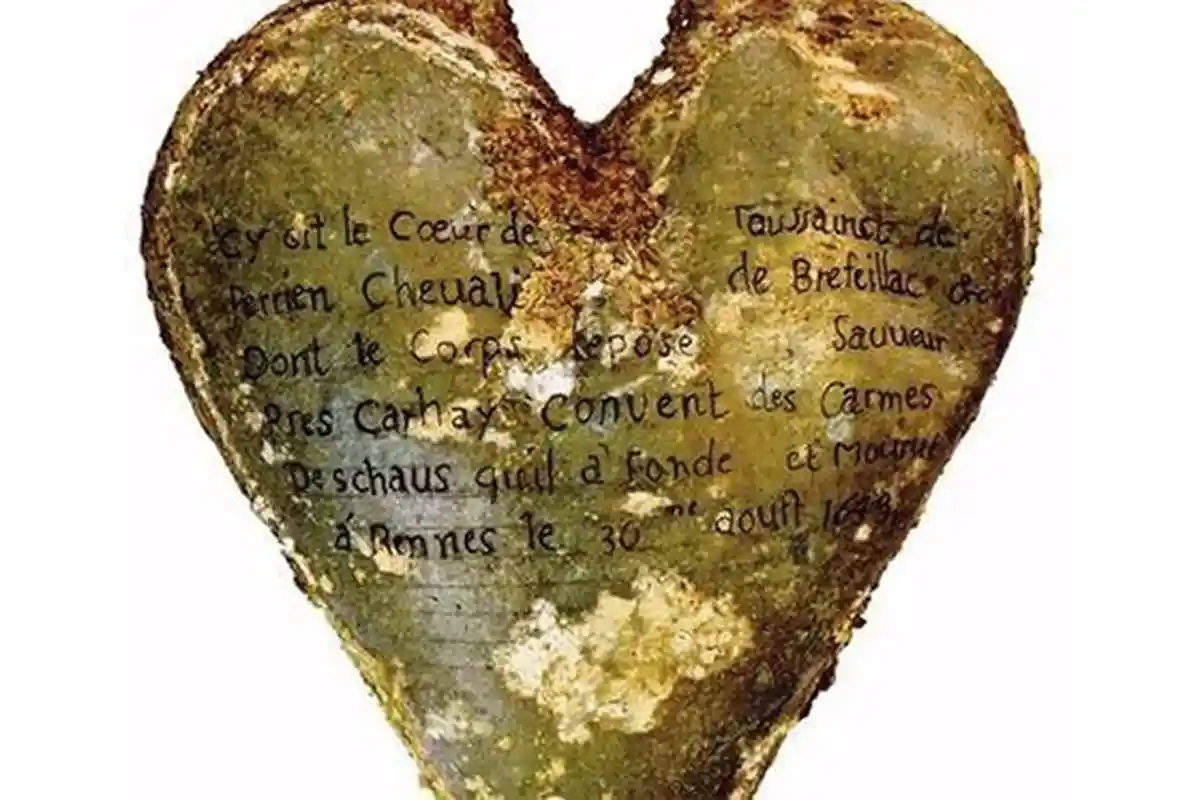 Cy Git le Cœur de Toussainct de
Perrien Cheuali de Brefeillac
Dont le Corps Repose Sauueur
Pres Carhay Convent des Carmes
Deschaus quil a fonde et Mourut
á Rennes le 30 me aoust